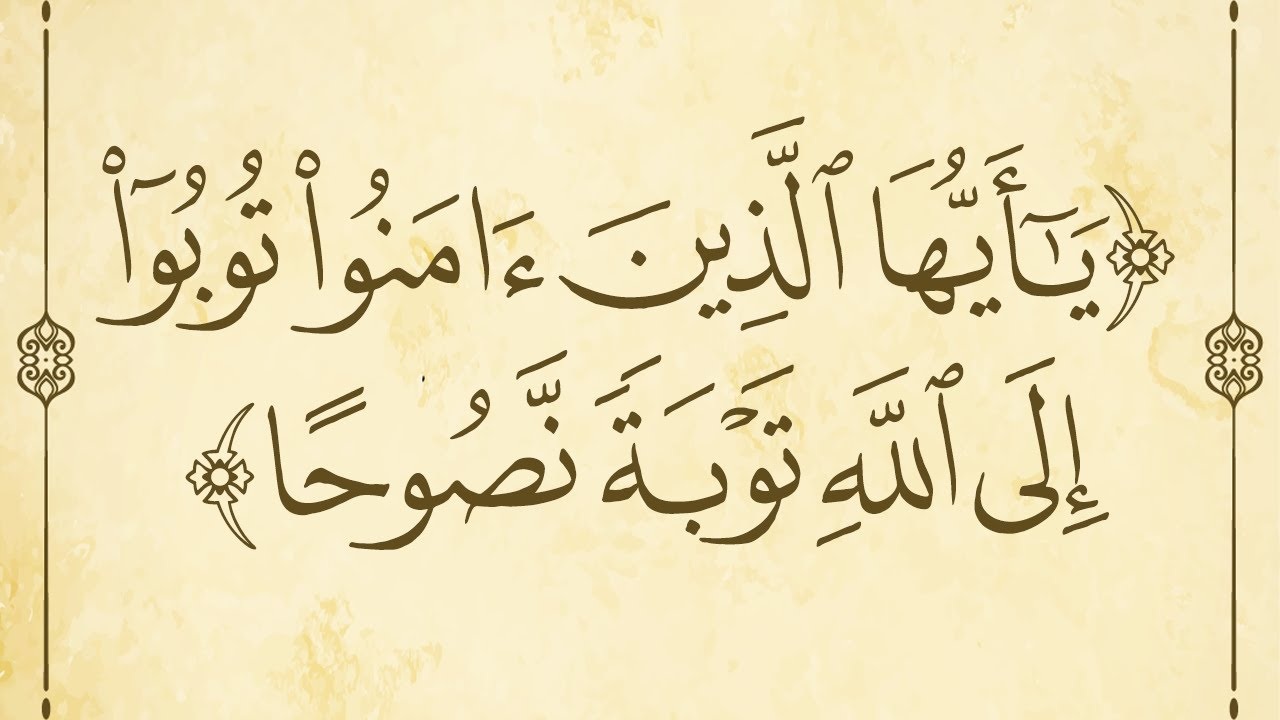 ﴿يَـٰٓأَيُّهَا ٱلَّذِينَ ءَامَنُوا۟ تُوبُوٓا۟
إِلَى ٱللَّهِ تَوْبَةً نَّصُوحًا﴾